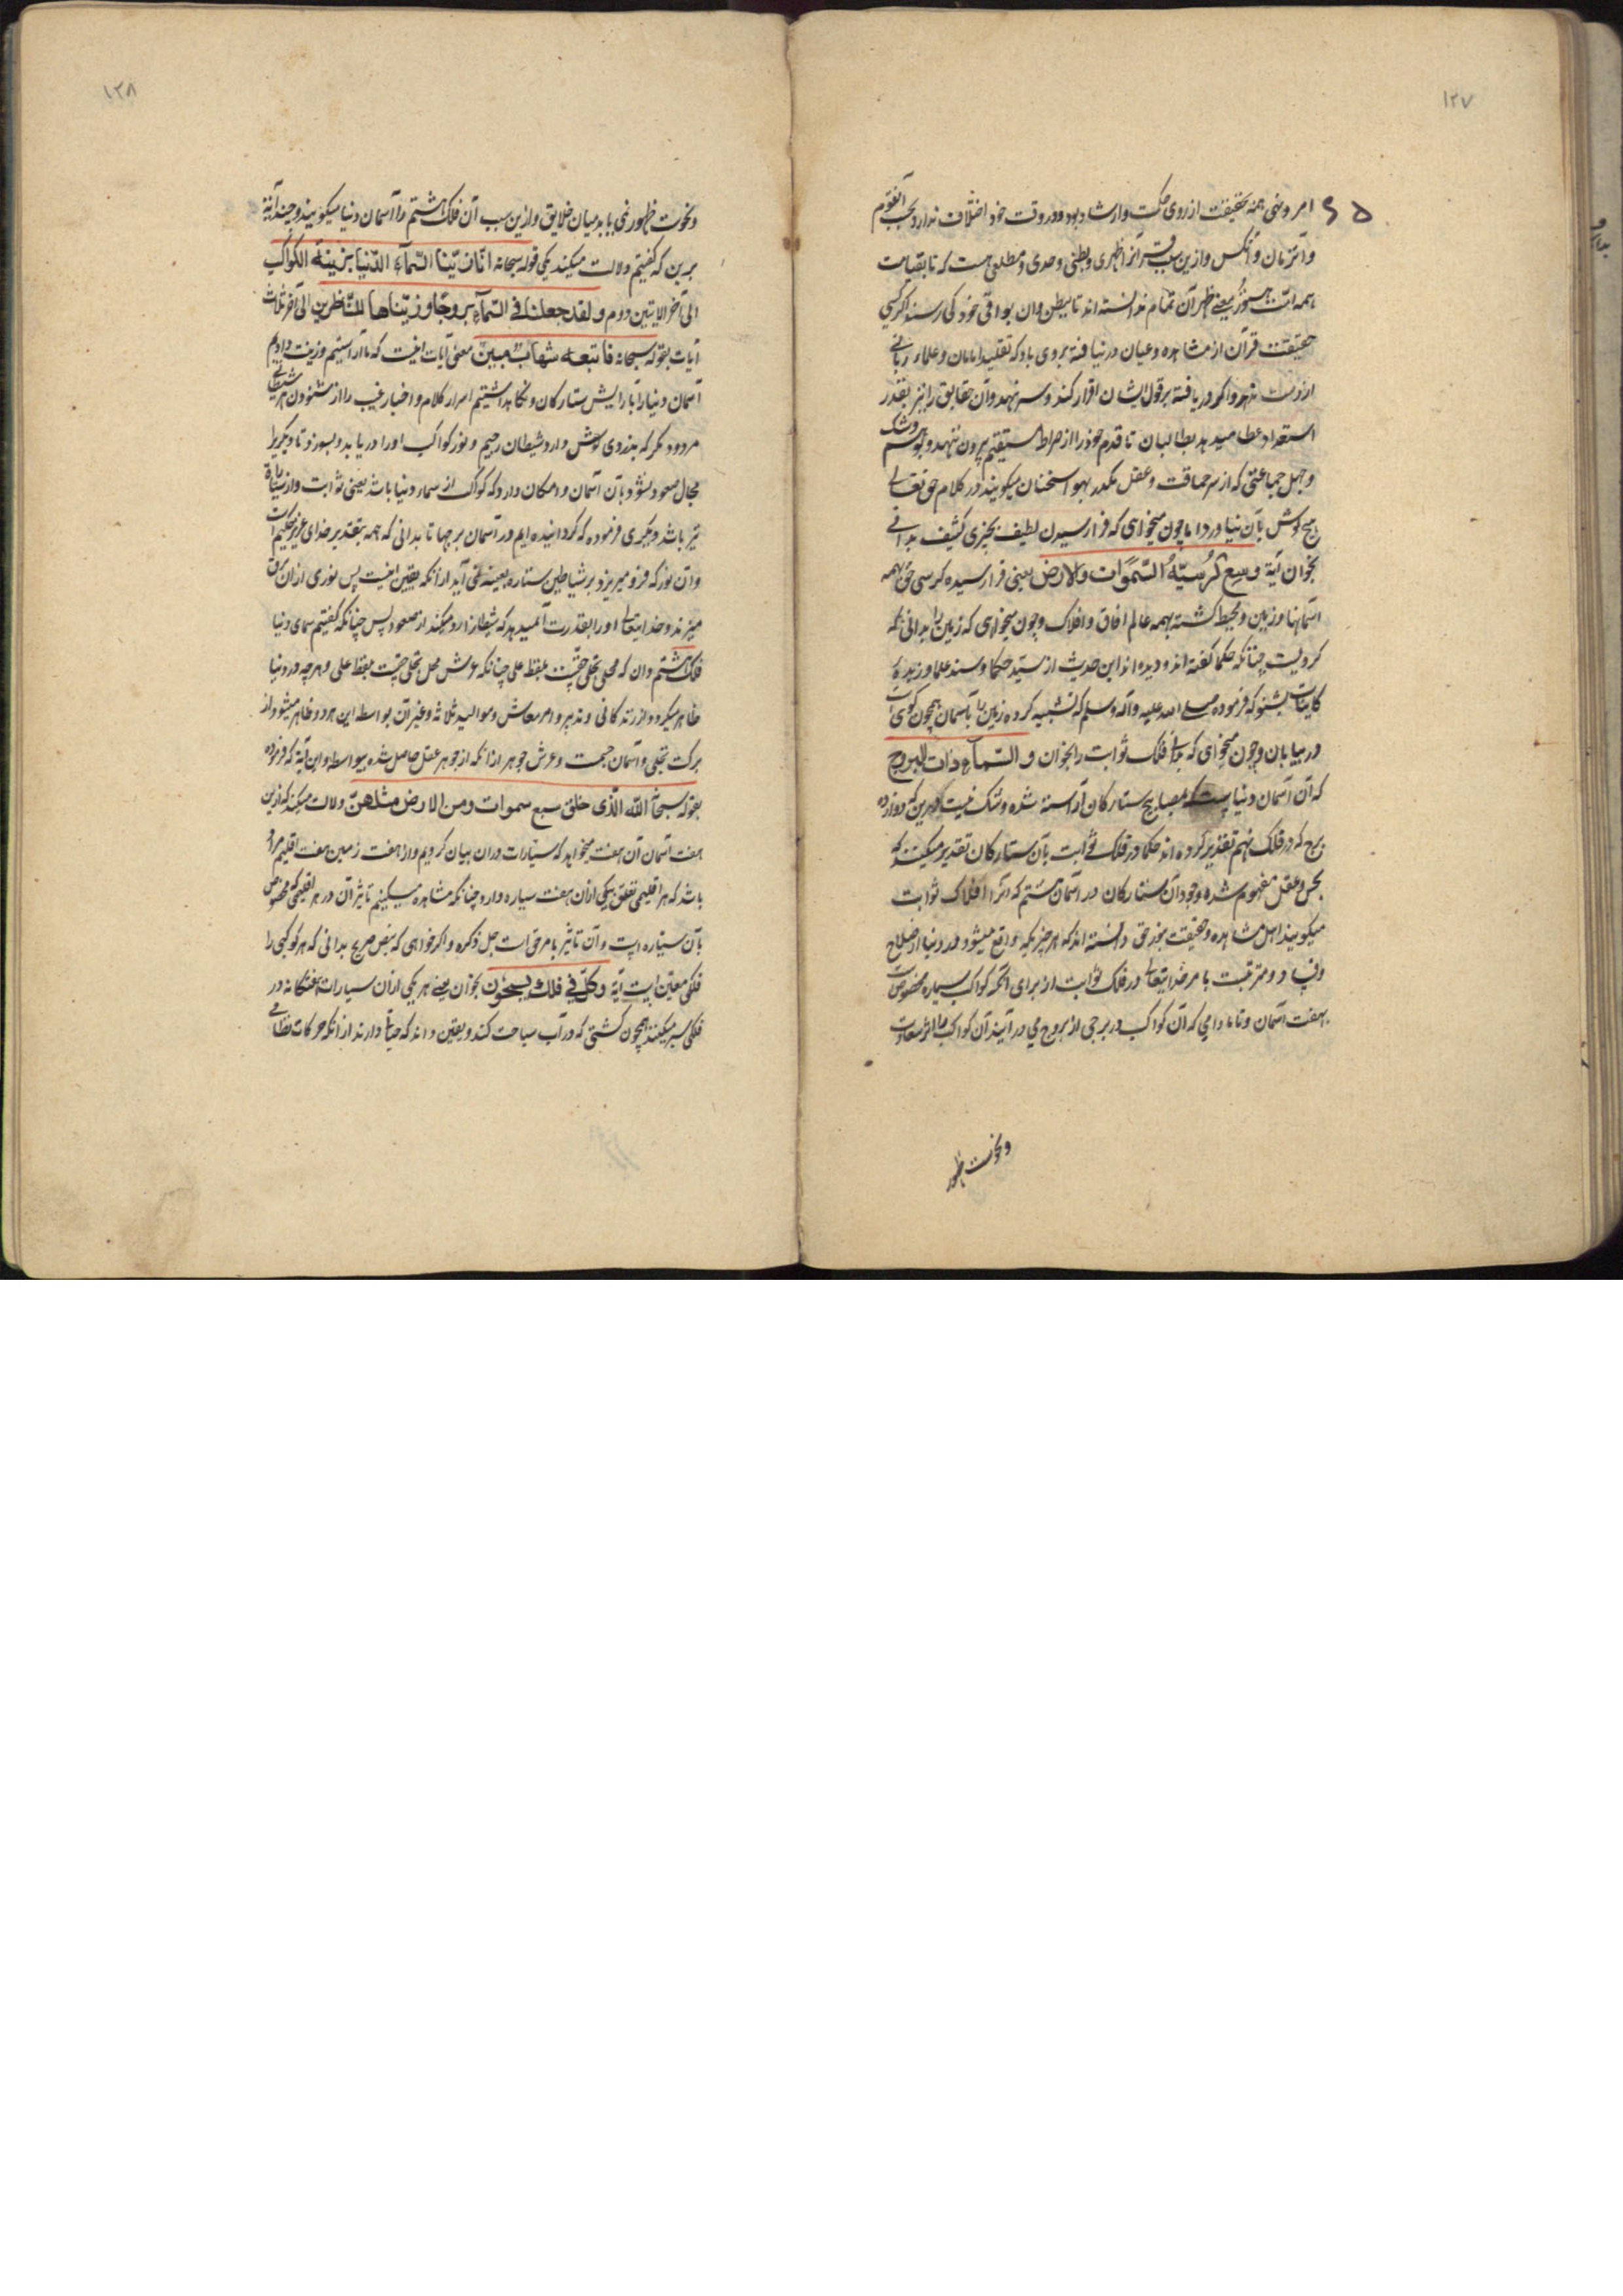 ۱۲۷
امر ونهی همه بحقیقت از روی حکمت وارشاد بود ودر وقت خود اختلاف ندارد بحسب آنقوم
وآن زمان وآنکس وازین سبب قرآنرا ظهری وبطنی وحدی ومطلعی هست که تا بقیامت
همه امت هنوز معنی ظهر آن تمام ندانسته اند تا ببطن وآن بواقی خود کی رسند اگر کسی
حقیقت قرآن از مشاهده وعیان در نیافته بروی باد که تقلید امامان وعلماء ربانی
از دست ندهد وآنکه دریافته بر قول ایشان اقرار کند وسر نهد وآن حقایق را نیز بقدر
استعداد عطا میدهد بطالبان تا قدم خود را از صراط مستقیم بیرون ننهد وبوهم وشک
وجهل جماعتی که از سر حماقت وعقل مکدر بهوا سخنان میگویند در کلام حق تعالی
هیچ گوش بآن نیاورد اما چون میخواهی که فرا رسیدن لطیف بچیزی کثیف بدانی
بخوان آیة وسع کرسیّه السّموات والارض یعنی فرا رسیده کرسی حق بهمه
آسمانها وزمین ومحیط گشته بهمه عالم آفاق وافلاک وچون میخواهی که زمین را بدانی که
کرویست چنانکه حکما گفته اند ودیده اند این حدیث از سیّد حکما وسند علما وزبدهٔ
کاینات بشنو که فرموده صلی الله علیه وآله وسلم که تشبیه کرده زمین را بآسمان همچون گویی است
در بیابان وچون میخواهی که بدانی فلک ثوابت را بخوان والسّماء ذات البروج
که آن آسمان دنیاست که بمصابیح ستارکان آراسته شده وشک نیست درین که دوازده
برج که در فلک نهم تقدیر کرده اند حکما در فلک ثوابت بآن ستارکان تقدیر میکنند که
بحس وعقل مفهوم شده وجود آن ستارکان در آسمان هشتم که آنرا افلاک ثوابت
میگویند اهل مشاهده وحقیقت بنور حق دانسته اند که هر چیز که واقع میشود در دنیا از صلاح
وفساد ومترتبست بامر خدایتعالی در فلک ثوابت از برای آنکه کواکب سیاره مخصوص است
بهفت آسمان وتا مادامی که آن کواکب در برجی از بروج می در آیند آن کواکب را اثر سعادت
ونحوست ظهور
۱۲۸
ونحوست ظهور نمی یابد میان خلایق وازین سبب آن فلک هشتم را آسمان دنیا میگویند وچند آیة
برین که گفتیم دلالت میکند یکی قوله سبحانه انّا زیّنا السّمآء الدّنیا بزینة الکواکب
الی آخر الآیتین دوم ولقد جعلنا فی السّمآء بروجًا وزیّنّاها للنّاظرین الی آخر ثلاث
آیات بقوله سبحانه فاتبعه شهاب مبین معنی آیات اینست که ما آراستیم وزینت دادیم
آسمان دنیا را بآرایش ستارکان ونگاه داشتیم اسرار کلام واخبار غیب را از شنودن هر شیطانی
مردود مگر که بدزدی گوش دارد شیطان رجیم ونور کواکب اورا دریابد وبسوزد تا دیگر برا
مجال صعود نشود بآن آسمان وامکان دارد که کواکب از سماء دنیا باشد یعنی ثوابت واز سیّاره
نیز باشد ودیگری فرموده که گردانیده ایم در آسمان برجها تا بدانی که همه بتقدیر خدای عزیز حکیم است
وآن نور که فرو میریزد بر شیاطین ستاره بعینه نمی آید از آنکه یقین اینست پس نوری از آن
میزند وخدایتعالی اورا آنقدرت میدهد که شیطانرا رد میکند از صعود پس چنانکه گفتیم سمای دنیا
فلک هشتم وآن که محل تجلی حقست بلفظ علی چنانکه عرش محل تجلی حقست بلفظ علی وهر چه در دنیا
ظاهر میگردد از زندگانی وتدبیر وامر معاش وموالید ثلاثه وغیر آن بواسطه این هر دو ظاهر میشود از
برکت تجلی وآسمان جسمست وعرش جوهر از آنکه از جوهر عقل حاصل شده بیواسطه واین آیة که فرموده
بقوله سبحانه الله الّذی خلق سبع سموات ومن الارض مثلهنّ دلالت میکند که ازین
هفت آسمان آن هفت میخواهد که سیّارات در آن بیان کردیم واز هفت زمین هفت اقلیم مراد
باشد که هر اقلیمی تعلق بیکی از آن هفت سیاره دارد چنانکه مشاهده میکنیم تأثیر آن در هر اقلیمی که مخصوص
بآن سیّاره است وآن تأثیر بامر حق است جل ذکره واگر خواهی که بنص صریح بدانی که هر کوکبی را
فلکی معین است آیة وکلّ فی فلک یسبحون بخوان یعنی هر یکی از آن سیارات هفتگانه در
فلکی سیر میکنند همچون کشتی که در آب سباحت کند ویقین داند که حیاة دارند از آنکه حرکات نظامی